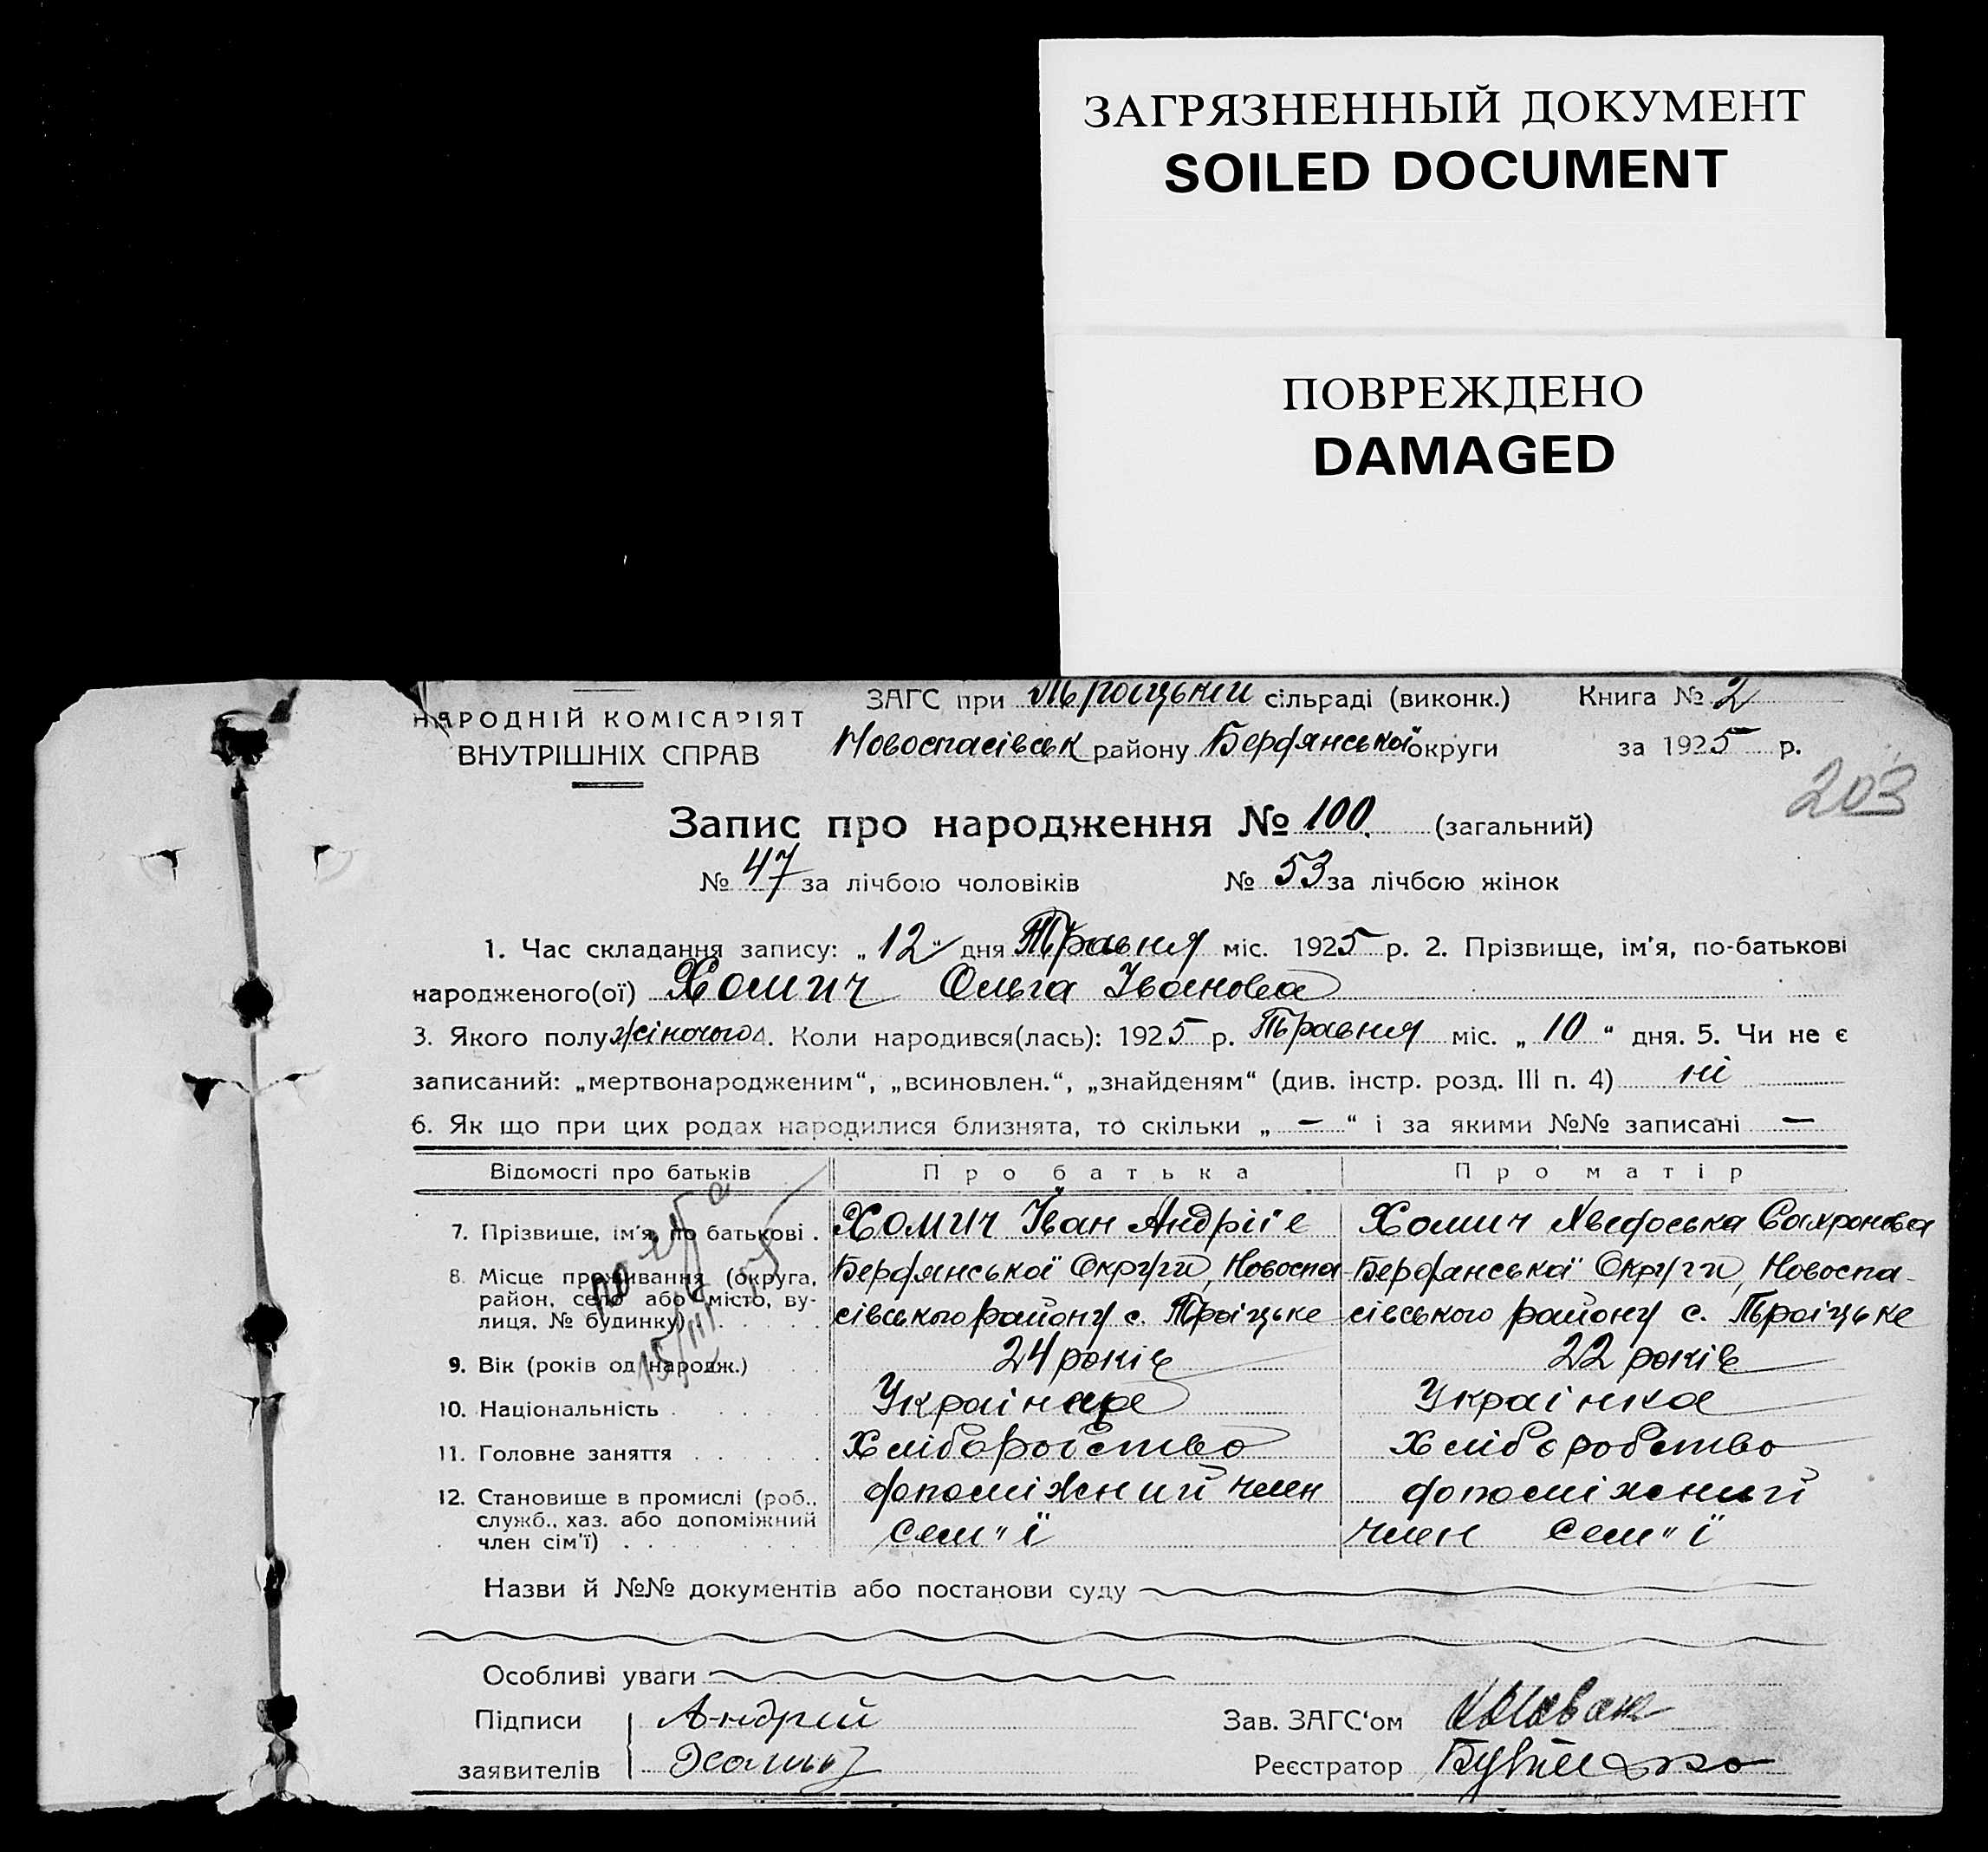 ЗАГРЯЗНЕННЫЙ ДОКУМЕНТ
SOILED DOCUMENT
ПОВРЕЖДЕНО
DAMAGED
НАРОДНІЙ КОМІСАРІЯТ
ВНУТРІШНІХ СПРАВ
ЗАГС при Троіцькій сільраді (виконк.) Книга № 2
Новоспасівськ району Бердянської округи за 1925 р.
203
Запис про народження № 100. (загальний)
№ 47 за лічбою чоловіків № 53 за лічбою жінок
1. Час складання запису: „12“ дня Травня міс. 1925 р. 2. Прізвище, ім'я, по-батькові
народженого(ої) Хомич Ольга Іванова
3. Якого полу жіночого 4. Коли народився(лась): 1925 р. Травня міс. „10“ дня. 5. Чи не є
записаний: „мертвонародженим“, „всиновлен.“, „знайденям“ (див. інстр. розд. III п. 4) ні
6. Як що при цих родах народилися близнята, то скільки „—“ і за якими №№ записані —
Відомості про батьків Про батька Про матір
7. Прізвище, ім'я, по батькові . Хомич Іван Андріїв Хомич Хведоська Сахронова
8. Місце проживання (округа, район, село або місто, ву-
лиця, № будинку)
Бердянської Округи, Новоспа-
сівського району с. Троіцьке
Бердянської Округи, Новоспа-
сівського району с. Троіцьке
9. Вік (років од народж.) 24 років 22 років
10. Національність Українец Украінка
11. Головне заняття Хліборобство Хліборобство
12. Становище в промислі (роб.,
служб., хаз. або допоміжний
член сім'ї)
допоміжний член
сем"ї
допоміжний
член сем"ї
Назви й №№ документів або постанови суду
Особливі уваги
Підписи заявителів Андрій
Хомич
Зав. ЗАГС'ом
Реєстратор